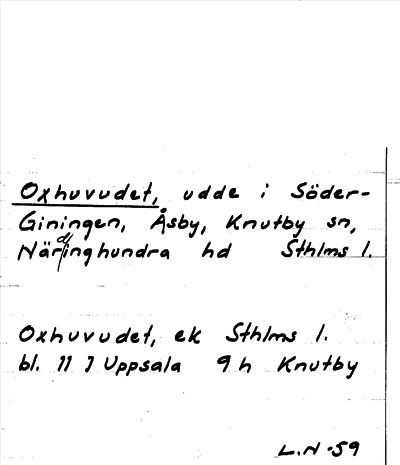 Oxhuvudet, udde i Söder-
Giningen, Åsby, Knutby sn,
Närdinghundra hd Sthlms l.
Oxhuvudet, ek Sthlms l.
bl. 11 I Uppsala 9 h Knutby
L.N -59